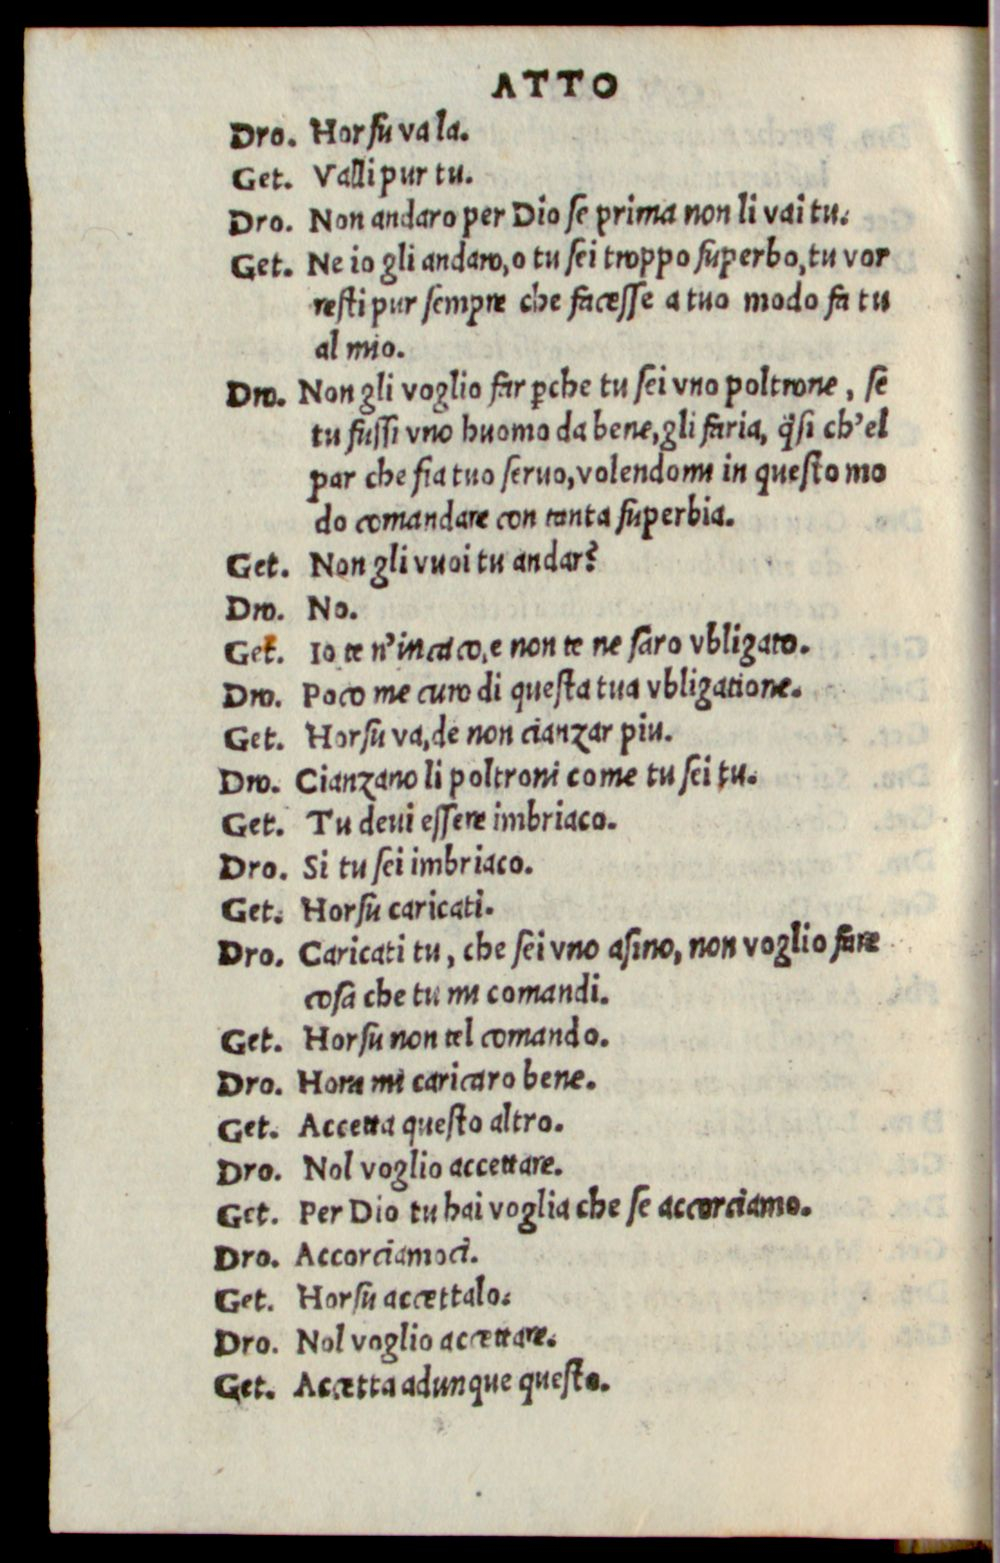 ATTO
Dro. Horſu va la.
Get. Valli pur tu.
Dro. Non andaro per Dio ſe prima non li vai tu.
Get. Ne io gli andaro, o tu ſei troppo ſuperbo, tu vor
reſti pur ſempre che faceſſe a tuo modo fa tu
al mio.
Dro. Non gli voglio far ꝑche tu ſei vno poltrone, ſe
tu fuſſi vno huomo da bene, gli faria, q̃ſi ch'el
par che ſia tuo ſeruo, volendomi in queſto mo
do comandare con tanta ſuperbia.
Get. Non gli vuoi tu andar?
Dro. No.
Get. Io te n'incaco, e non te ne ſaro vbligato.
Dro. Poco me curo di queſta tua vbligatione.
Get. Horſu va, de non cianzar piu.
Dro. Cianzano li poltroni come tu ſei tu.
Get. Tu deui eſſere imbriaco.
Dro. Si tu ſei imbriaco.
Get. Horſu caricati.
Dro. Caricati tu, che ſei vno aſino, non voglio fare
coſa che tu mi comandi.
Get. Horſu non tel comando.
Dro. Hora mi caricaro bene.
Get. Accetta queſto altro.
Dro. Nol voglio accettare.
Get. Per Dio tu hai voglia che ſe accorciamo.
Dro. Accorciamoci.
Get. Horſu accettalo.
Dro. Nol voglio accettare.
Get. Accetta adunque queſto.